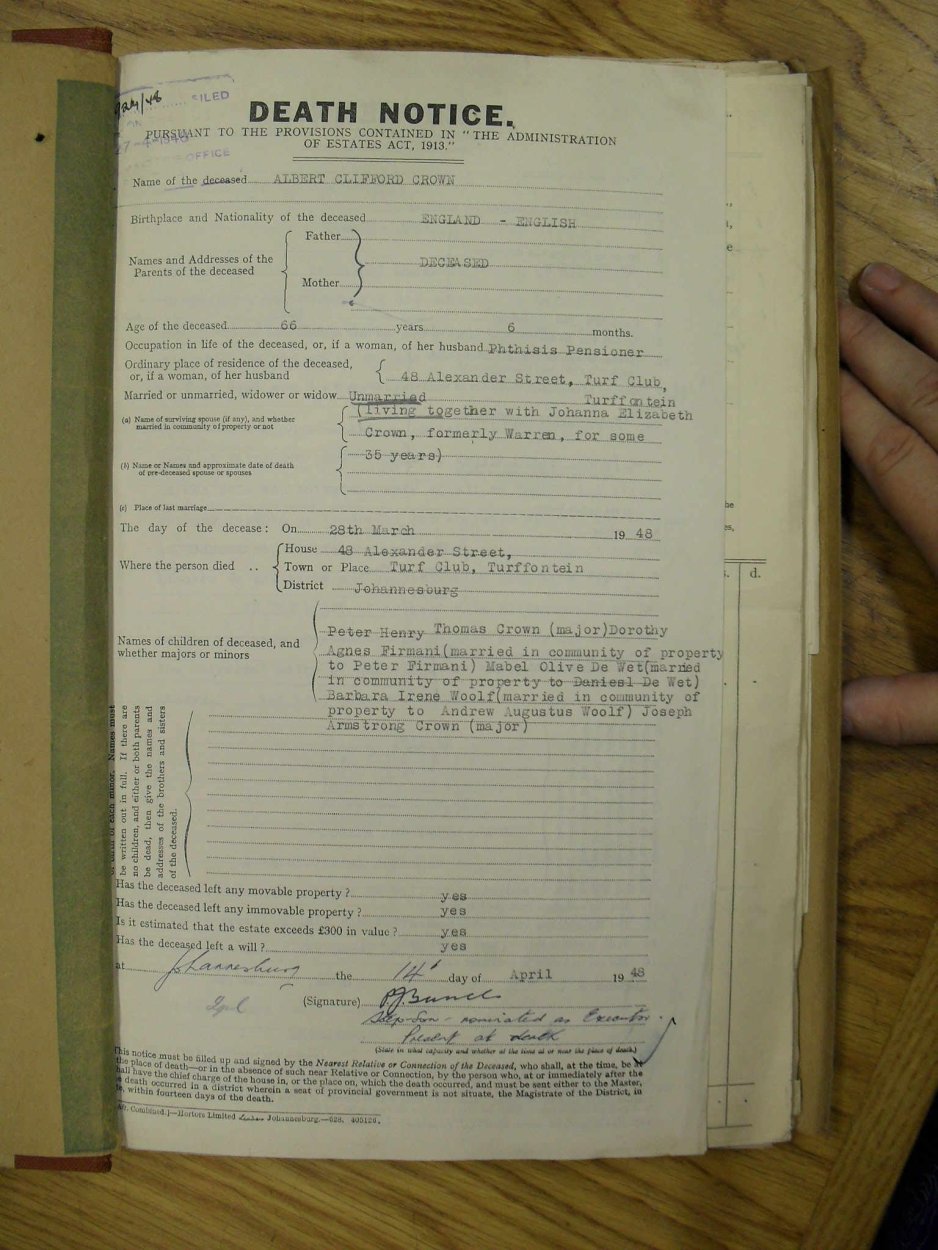 /48
FILED
DEATH NOTICE.
PURSUANT TO THE PROVISIONS CONTAINED IN "THE ADMINISTRATION
OF ESTATES ACT, 1913."
OFFICE
Name of the deceased ALBERT CLIFFORD CROWN
Birthplace and Nationality of the deceased ENGLAND - ENGLISH
Names and Addresses of the Parents of the deceased
Father
DECEASED
Mother
Age of the deceased 66 years 6 months.
Occupation in life of the deceased, or, if a woman, of her husband Phthisis Pensioner
Ordinary place of residence of the deceased,
or, if a woman, of her husband 48 Alexander Street, Turf Club,
Married or unmarried, widower or widow Unmarried Turffontein
(a) Name of surviving spouse (if any), and whether
married in community of property or not
(living together with Johanna Elizabeth
Crown, formerly Warren, for some
35 years)
(b) Name or Names and approximate date of death
of pre-deceased spouse or spouses
(c) Place of last marriage
The day of the decease: On 28th March 1948
Where the person died ..
House 48 Alexander Street,
Town or Place Turf Club, Turffontein
District Johannesburg
Names of children of deceased, and
whether majors or minors
Peter Henry Thomas Crown (major)Dorothy
Agnes Firmani(married in community of property
to Peter Firmani) Mabel Olive De Wet(married
in community of property to Daniesl De Wet)
Barbara Irene Woolf(married in community of
property to Andrew Augustus Woolf) Joseph
Armstrong Crown (major)
of each minor. Names must
be written out in full. If there are
no children, and either or both parents
be dead, then give the names and
addresses of the brothers and sisters
of the deceased.
Has the deceased left any movable property? yes
Has the deceased left any immovable property? yes
Is it estimated that the estate exceeds £300 in value? yes
Has the deceased left a will? yes
at Johannesburg the 14 day of April 1948
(Signature)
Step-Son - nominated as Executor.
Present at death
(State in what capacity and whether at the time at or near the place of death.)
This notice must be filled up and signed by the Nearest Relative or Connection of the Deceased, who shall, at the time, be at
the place of death—or in the absence of such near Relative or Connection, by the person who, at or immediately after the
shall have the chief charge of the house in, or the place on, which the death occurred, and must be sent either to the Master,
death occurred in a district wherein a seat of provincial government is not situate, the Magistrate of the District, in
within fourteen days of the death.
Combined.]—Hortors Limited Johannesburg.—628. 405126.
d.